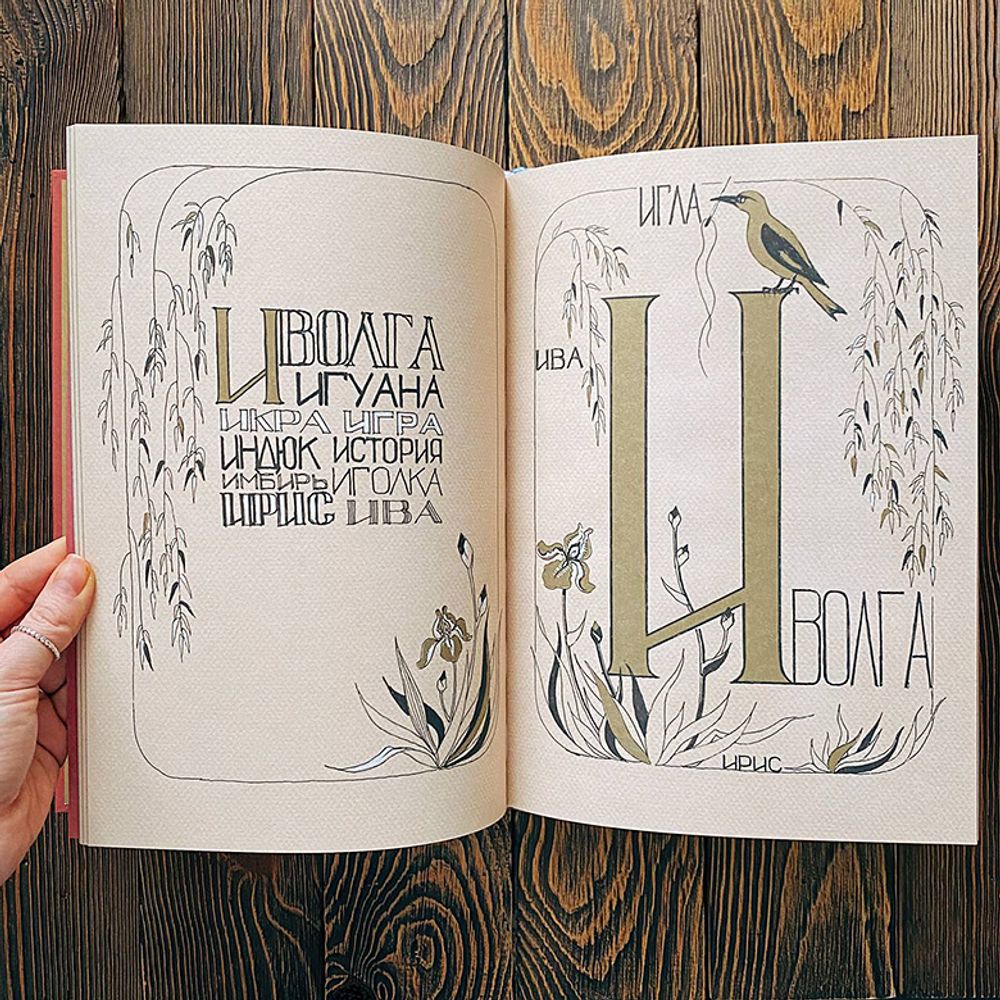 ИВОЛГА
ИГУАНА
ИКРА ИГРА
ИНДЮК ИСТОРИЯ
ИМБИРЬ ИГОЛКА
ИРИС ИВА
ИГЛА
ИВА
ИВОЛГА
ИРИС